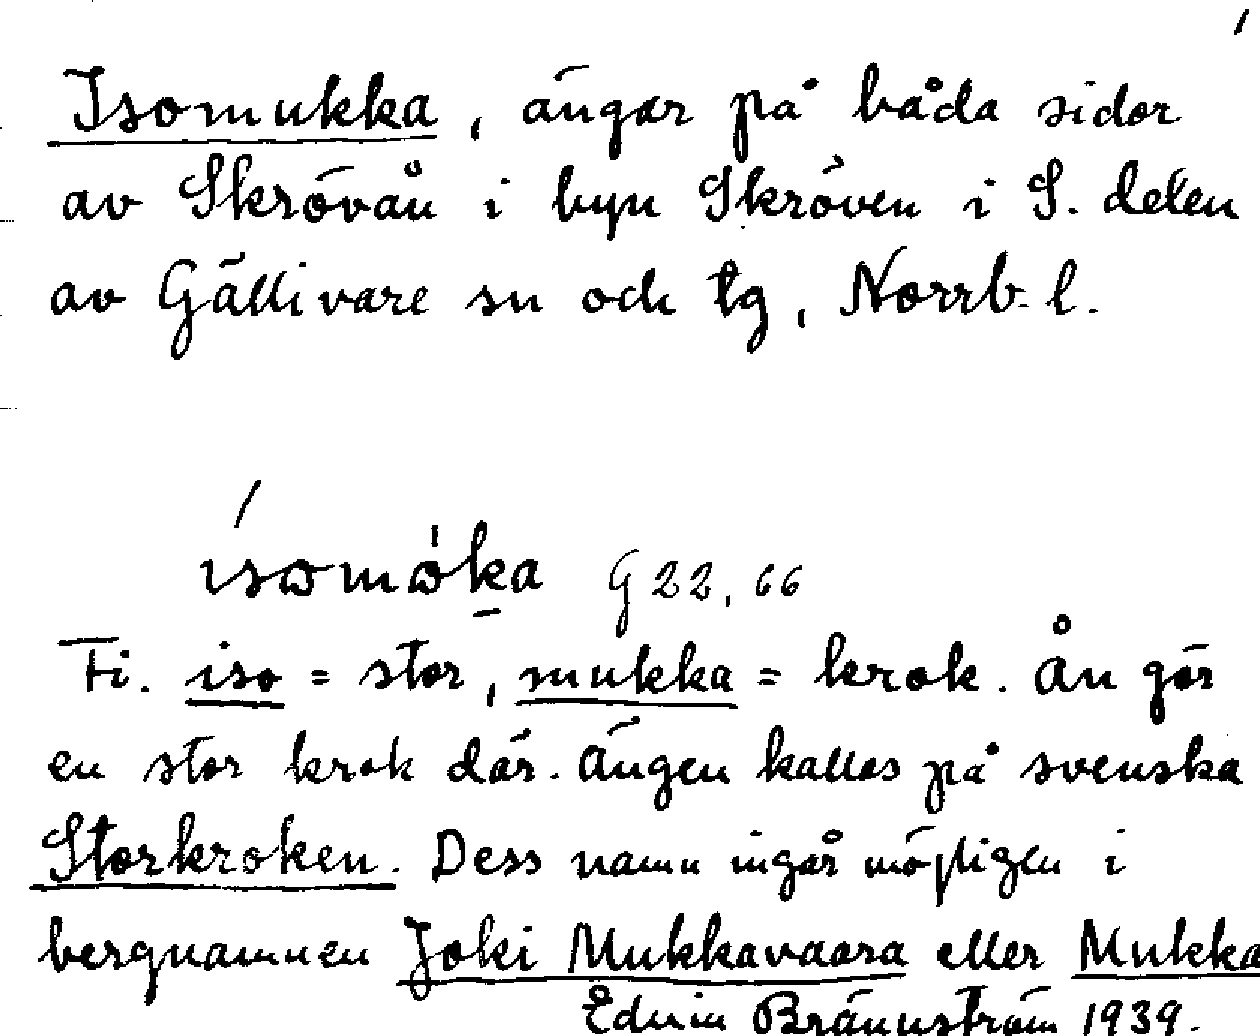 1
Isomukka, ängar på båda sidor
av Skrövån i byn Skröven i S. delen
av Gällivare sn och tg, Norrb. l.
ísomóka G 22, 66
Fi. iso = stor, mukka = krok. Ån gör
en stor krok där. Ängen kallas på svenska
Storkroken. Dess namn ingår möjligen i
bergnamnen Joki Mukkavaara eller Mukka
Edvin Brännström 1939.